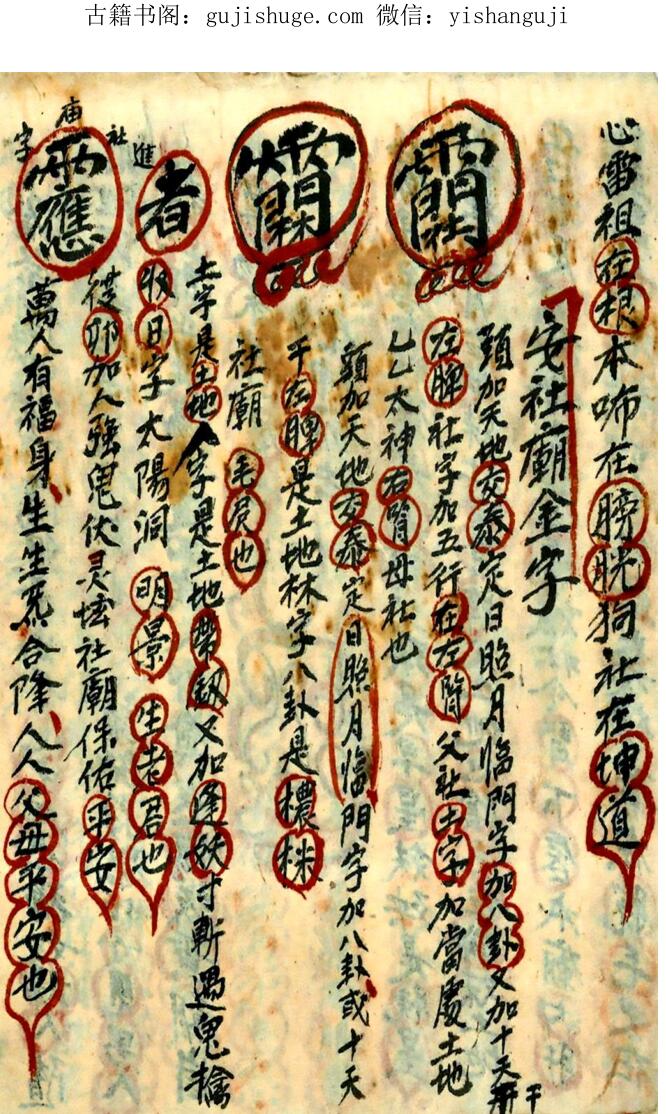 古籍书阁：gujishuge.com 微信：yishanguji
心雷祖在根本咘在膀胱狗社在坤道
安社廟金字
頭加天地交泰定日照月临門字加八卦又加十天干
左脾社字加五行在左腎父社土字加當處土地
乙乙太神右腎母社也
頭加天地交泰定日照月临門字加八卦或十天
干左脾是土地林字八卦是樣株
社廟
者也
土字是土地人字是土地帶劍又加逢妖寸斬遇鬼擒
收日字太陽洞明景生者君也
從卯加人強鬼伏灵坛社廟保佑平安
進社庙字
者
應
萬人有福身生生炁合降人人父母平安也